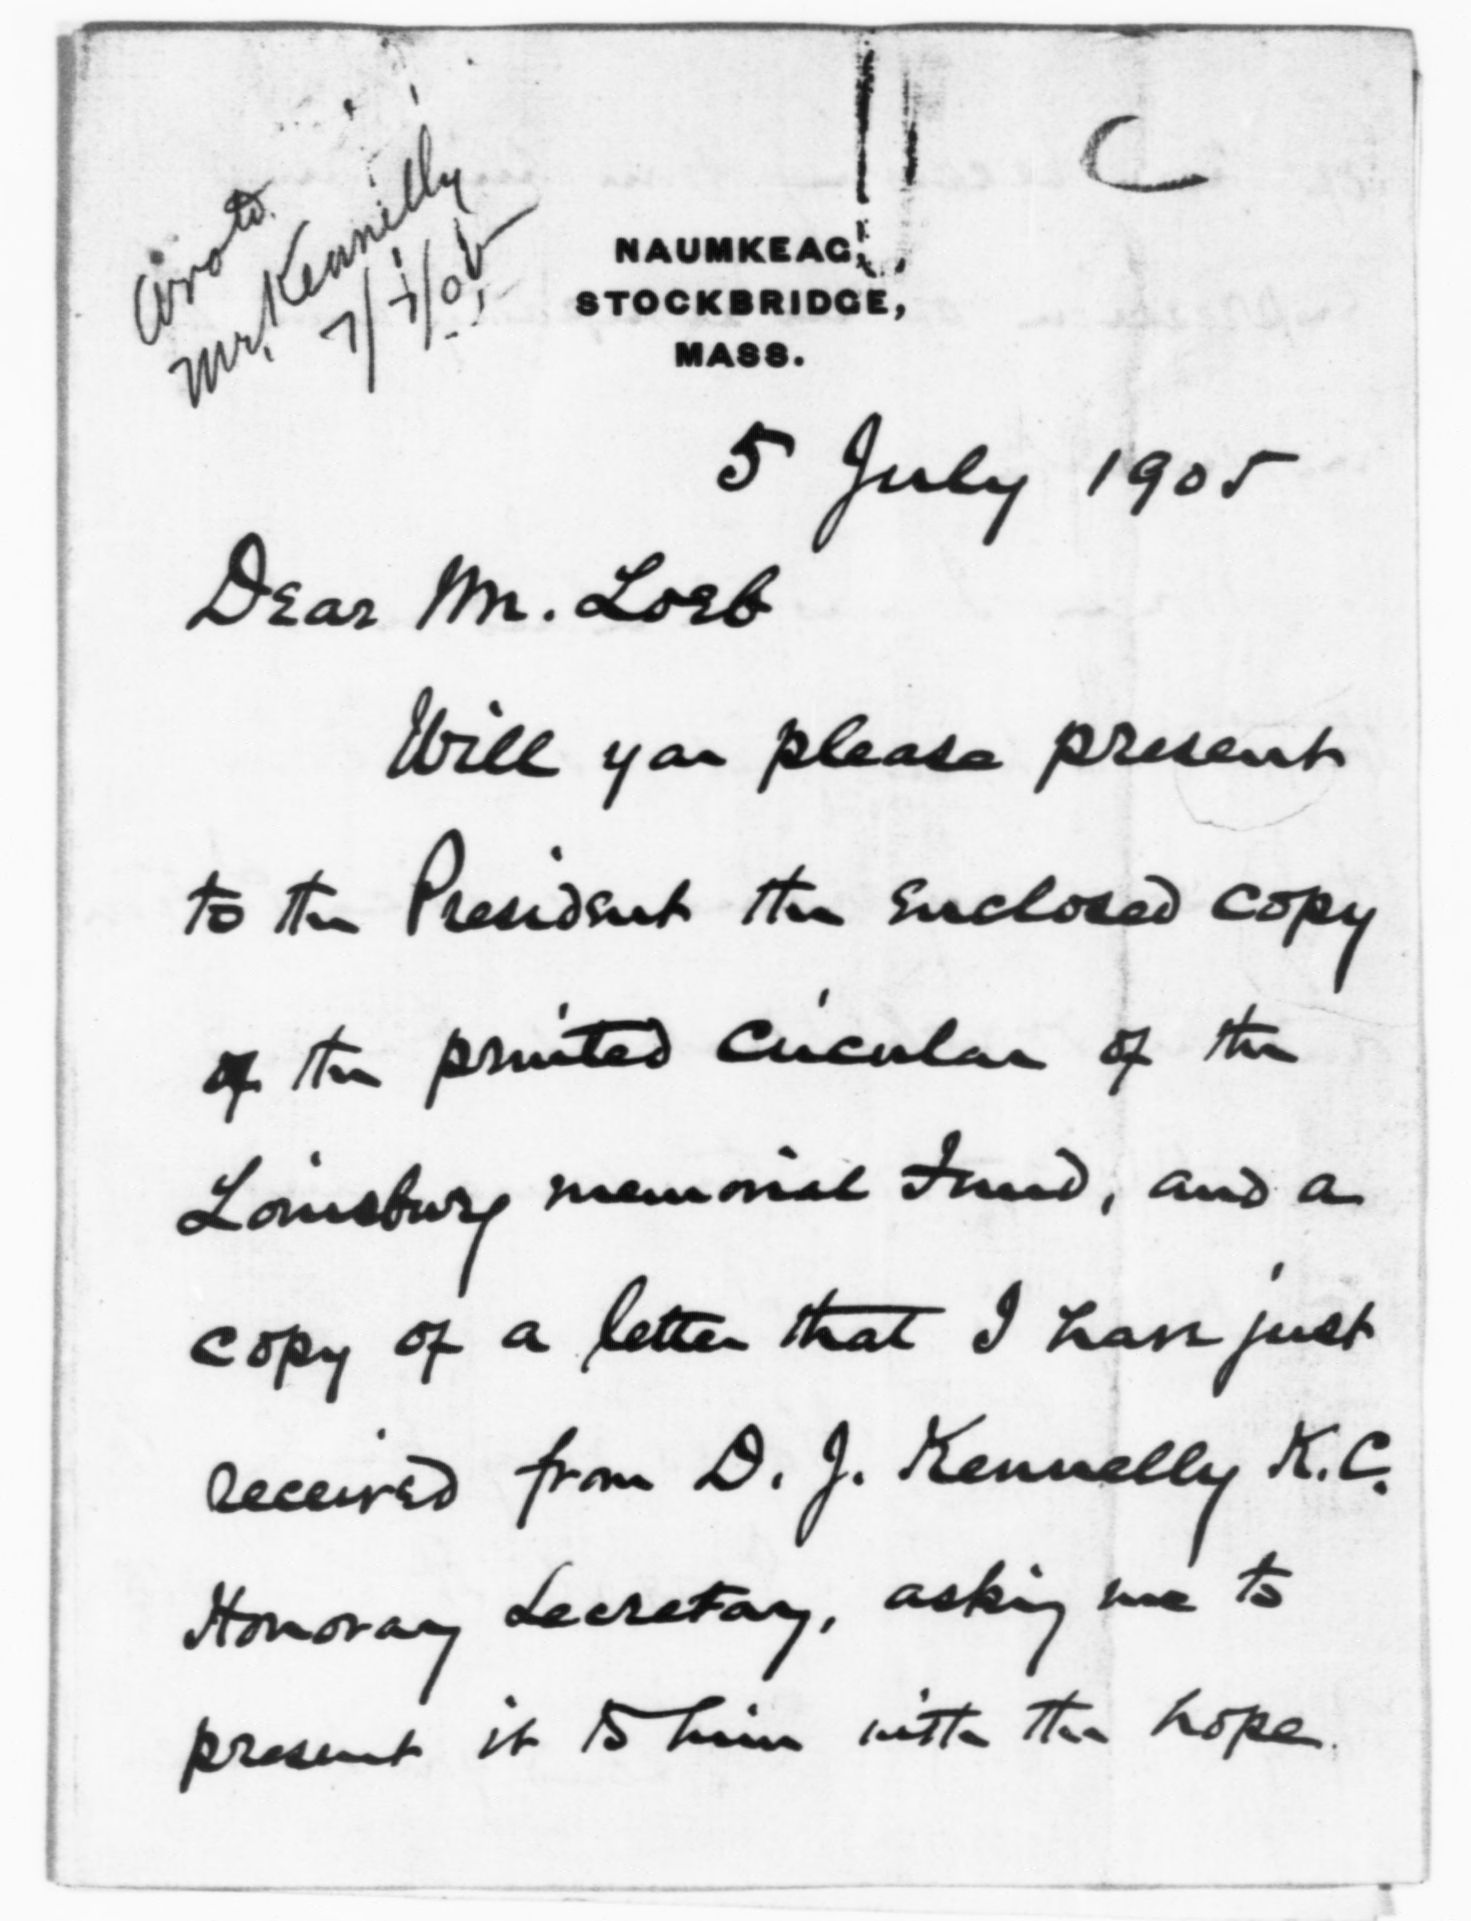 Wrote
Mr. Kennelly
7/7/05
C
NAUMKEAG,
STOCKBRIDGE,
MASS.
5 July 1905
Dear Mr. Loeb
Will you please present
to the President the enclosed copy
of the printed circular of the
Louisburg memorial Fund, and a
copy of a letter that I have just
received from D. J. Kennelly K.C.
Honorary Secretary, asking me to
present it to him with the hope